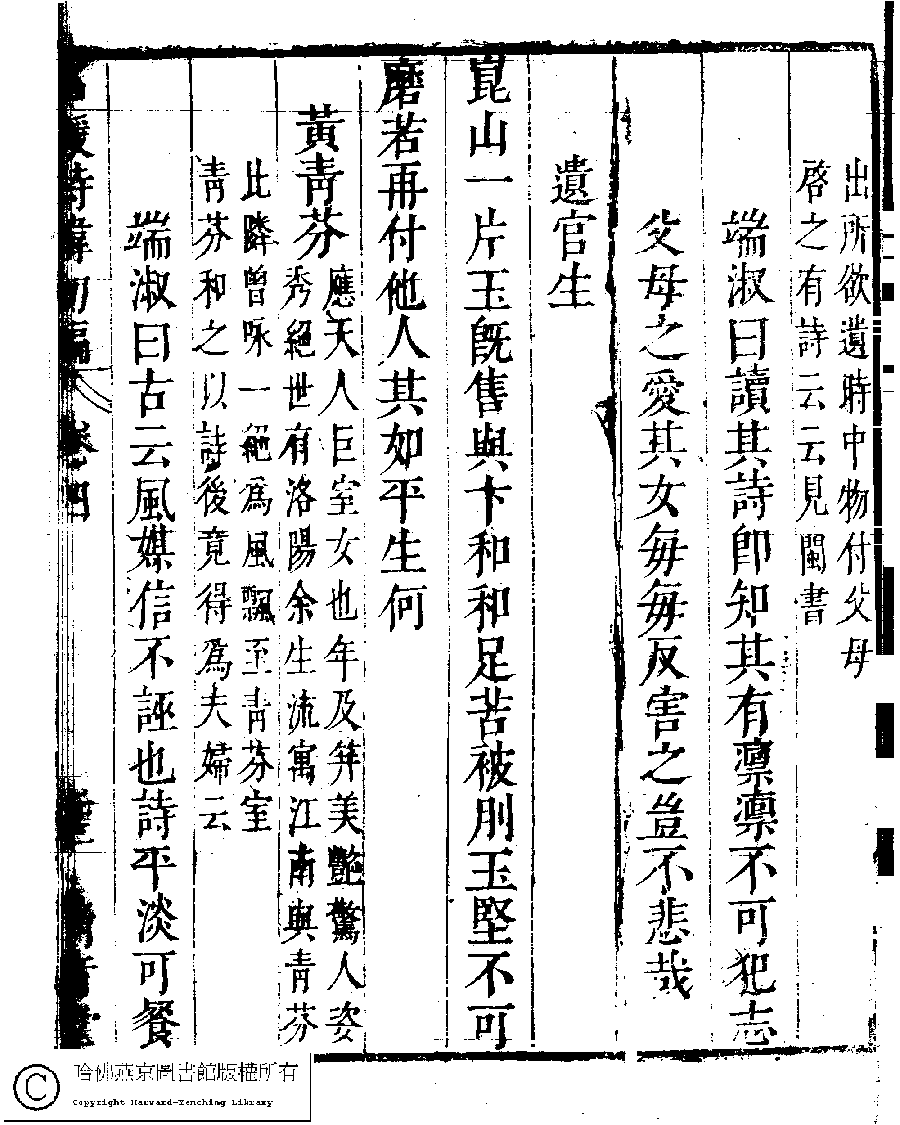 出所欲遺時中物付父母
啓之有詩云云見閩書
端淑曰讀其詩卽知其有凛凛不可犯志
父母之愛其女每每反害之豈不悲哉
遺官生
崑山一片玉旣售與卞和和足苦被刖玉堅不可
磨若再付他人其如平生何
黃青芬
應天人巨室女也年及笄美艷驚人姿
秀絕世有洛陽余生流寓江南與青芬
比隣曾咏一絕爲風飄至青芬室
青芬和之以詩後竟得爲夫婦云
端淑曰古云風媒信不誣也詩平淡可餐
媛詩緯初編
卷四
哈佛燕京圖書館版權所有
Copyright Harvard-Yenching Library